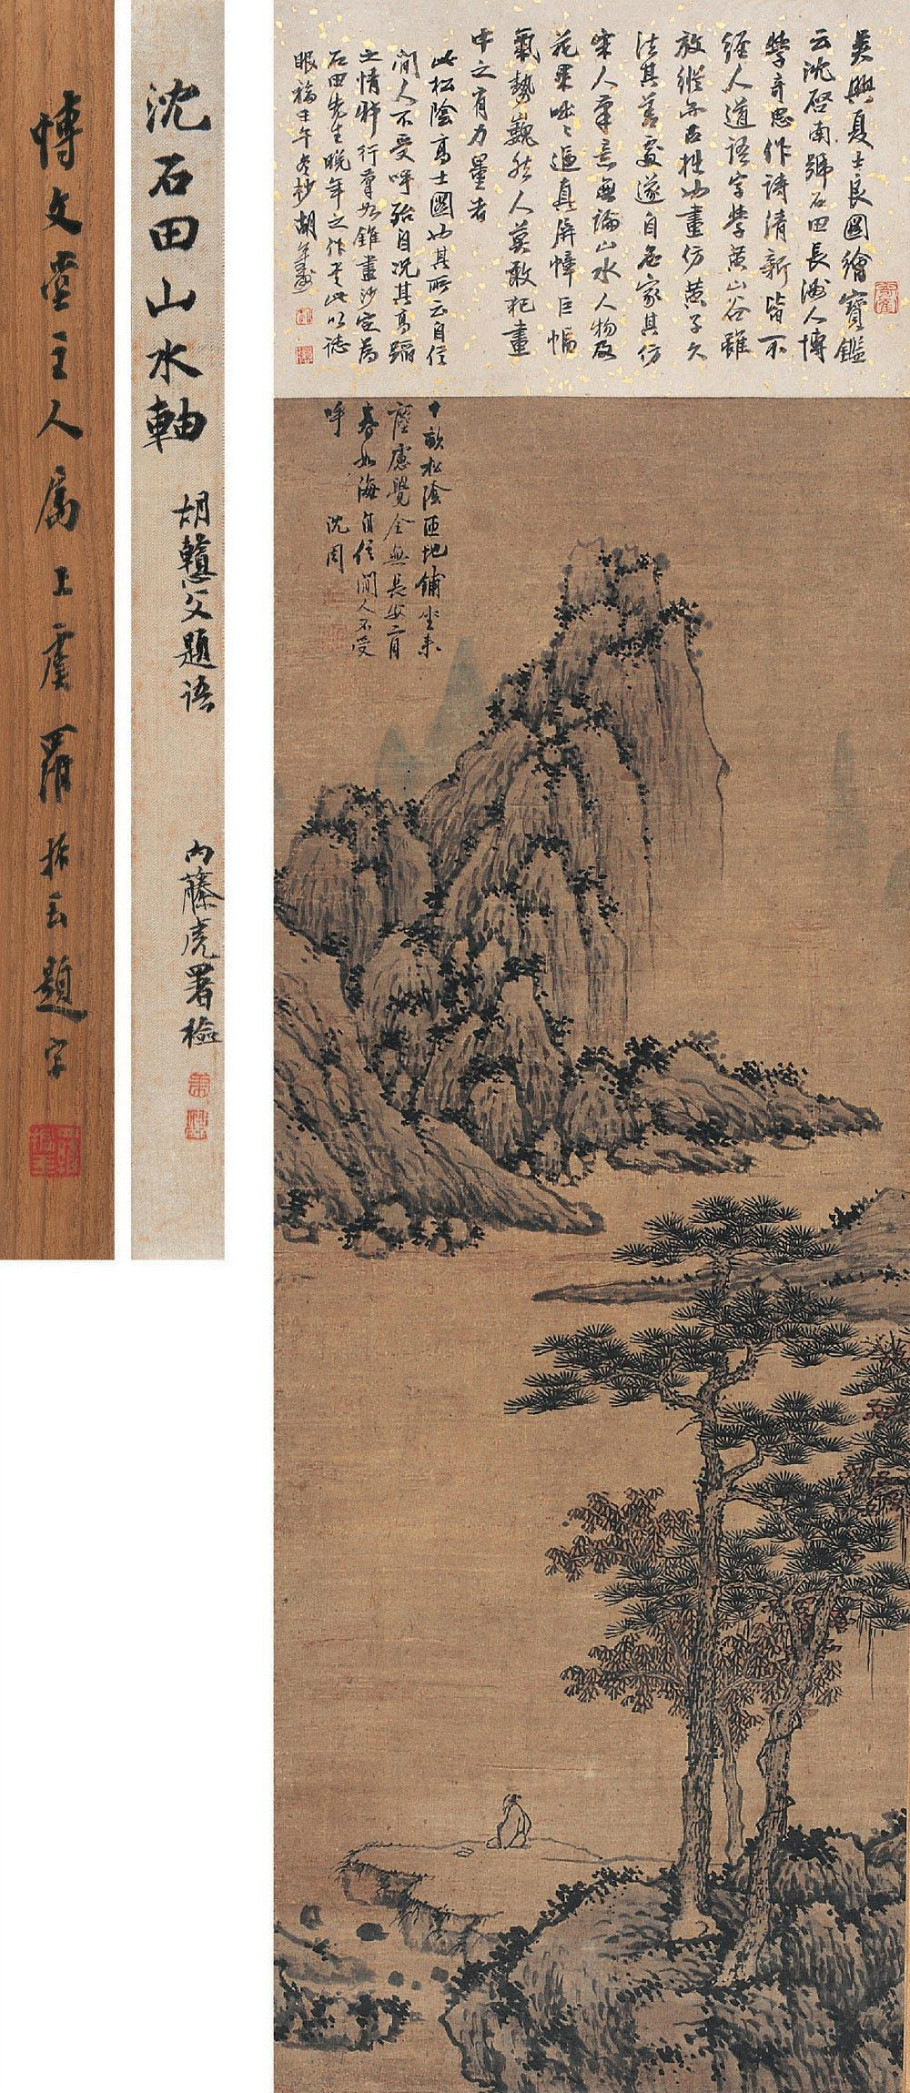 博文堂主人属上虞羅振玉題字
沈石田山水軸
胡鞻父題語
內藤虎署檢
吳興夏士良圖繪寶鑑
云沈啓南號石田長洲人博
學奇思作詩清新皆不
經人道語字學黃山谷雖
放縱亦古拙也畫仿黃子久
法其善處遂自名家其仿
宋人筆意無論山水人物及
花果啙啙逼真屏幛巨幅
氣勢巍然人莫敢犯畫
中之有力量者
此松陰高士圖也其所云自信
閒人不受呼殆自況其高蹈
之情幷行筆如錐畫沙定為
石田先生晚年之作書此以誌
眼福壬午冬抄胡
十畝松陰匝地鋪坐來
塵慮覺全無長安二月
春如海自信閒人不受
呼 沈周